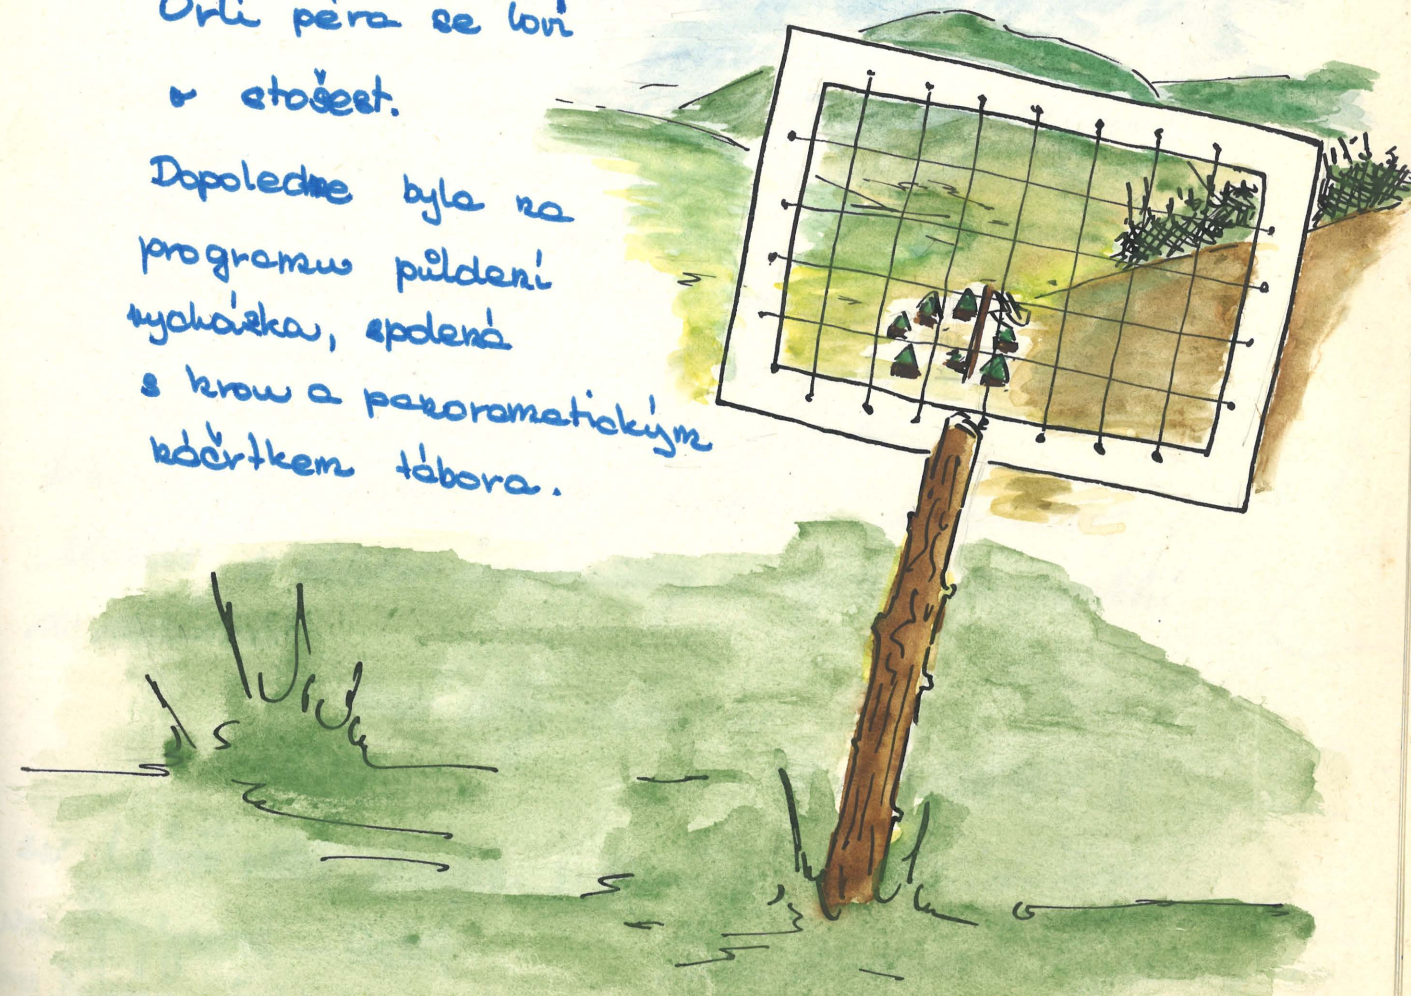 Orlí péra se loví
v stošest.
Dopoledne byla na
programu půldení
vycházka, spolená
s hrou a panoramatickým
náčrtkem tábora.